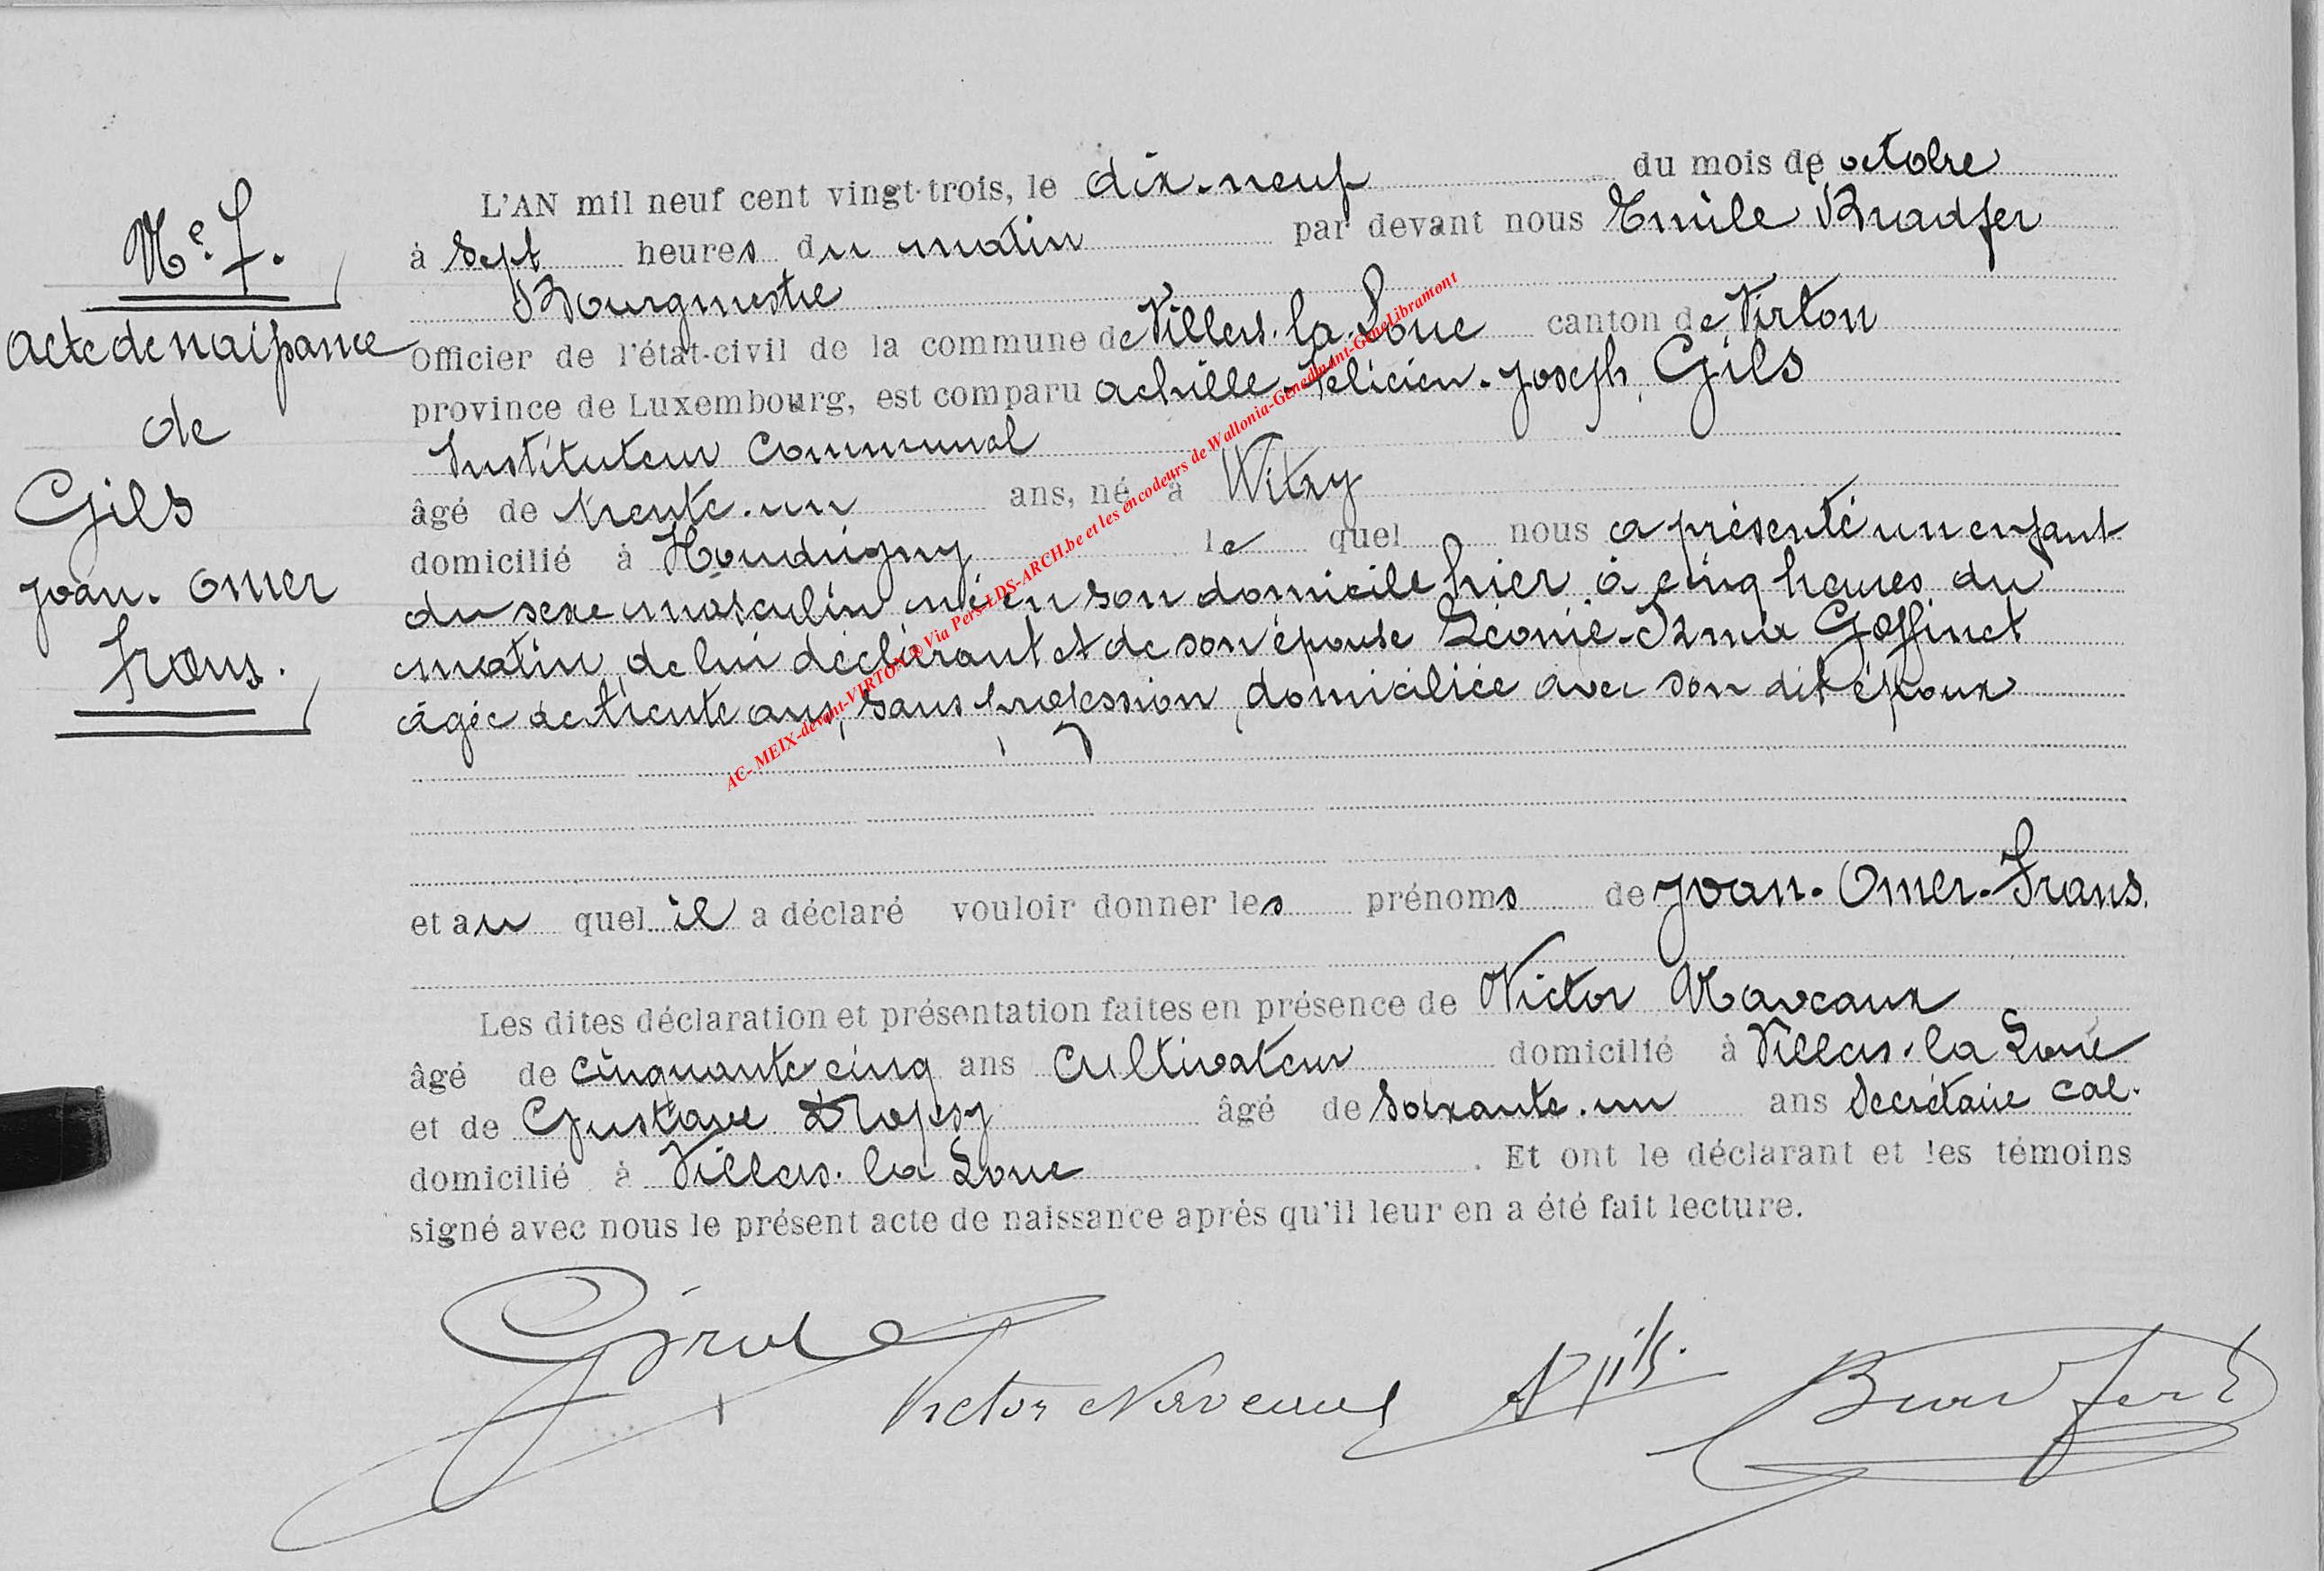 N.º 7.
Acte de naissance
de
Gils
Jvan. Omer
Frans.
L'AN mil neuf cent vingt-trois, le dix-neuf du mois de octobre
à Sept heures du matin par devant nous Emile Bradfer
Bourgmestre
Officier de l'état-civil de la commune de Villers-la-Loue canton de Virton
province de Luxembourg, est comparu Achille-Felicien-Joseph Gils
Instituteur Communal
âgé de trente-un ans, né à Witry
domicilié à Houdrigny le quel nous a présenté un enfant
du sexe masculin né en son domicile hier à cinq heures du
matin, de lui déclarant et de son épouse Léonie-Irma Goffinet
âgée de trente ans, sans profession, domiciliée avec son dit époux
et au quel il a déclaré vouloir donner les prénoms de Jvan-Omer-Frans.
Les dites déclaration et présentation faites en présence de Victor
âgé de cinquante cinq ans Cultivateur domicilié à Villers-la-Loue
et de Gustave âgé de Soixante-un ans Secrétaire Cal.
domicilié à Villers-la-Loue. Et ont le déclarant et les témoins
signé avec nous le présent acte de naissance après qu'il leur en a été fait lecture.
Victor A Gils. Bradfer E
AC- MEIX-devant-VIRTON @ Via Pers-LDS-ARCH.be et les encodeurs de Wallonia-Genedinant-GeneLibramont